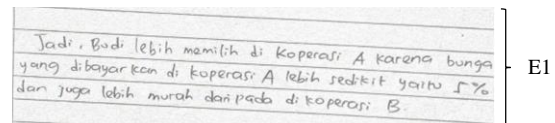 Jadi, Budi lebih memilih di Koperasi A karena bunga
yang dibayarkan di koperasi A lebih sedikit yaitu 5%
dan juga lebih murah daripada di koperasi B.
E1